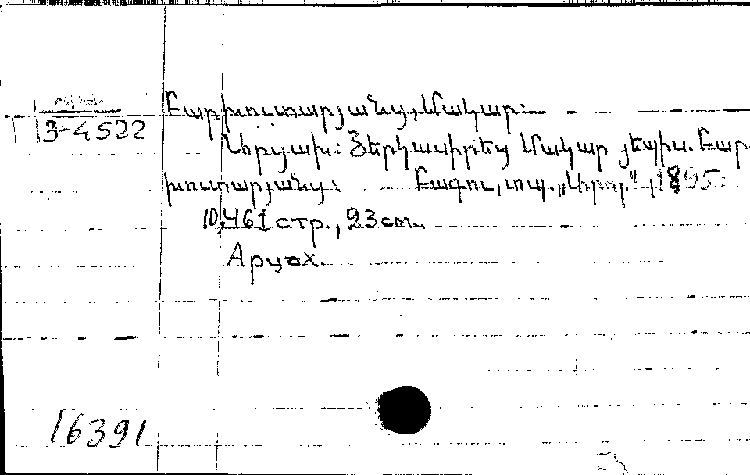 3-4522
Բարխուտարյանց, Մակար։
Արցախ։ Յերկասիրեց Մակար յեպիս. Բար-
խուտարյանց։ Բագու, տպ. „Արոր“, 1895։
10,461 стр., 23 cm.
Арцах.
16391